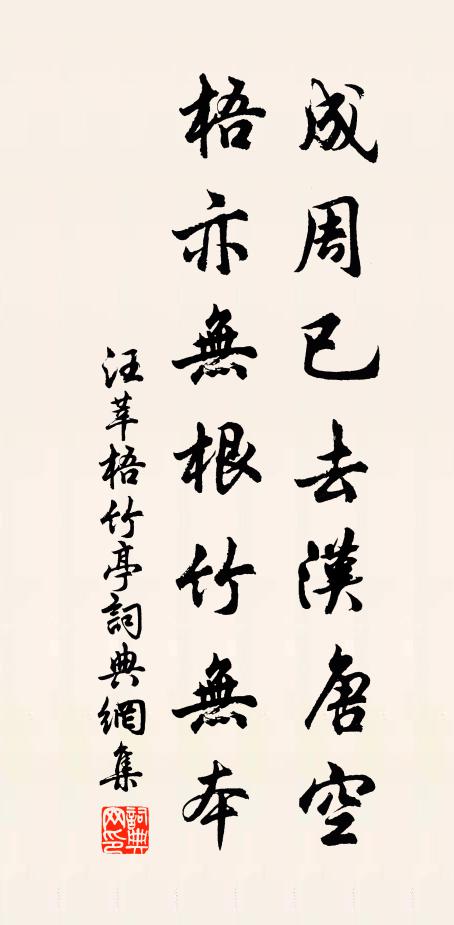 成周已去漢唐空
梧亦無根竹無本
汪莘梧竹亭詞典網集
詞典網印